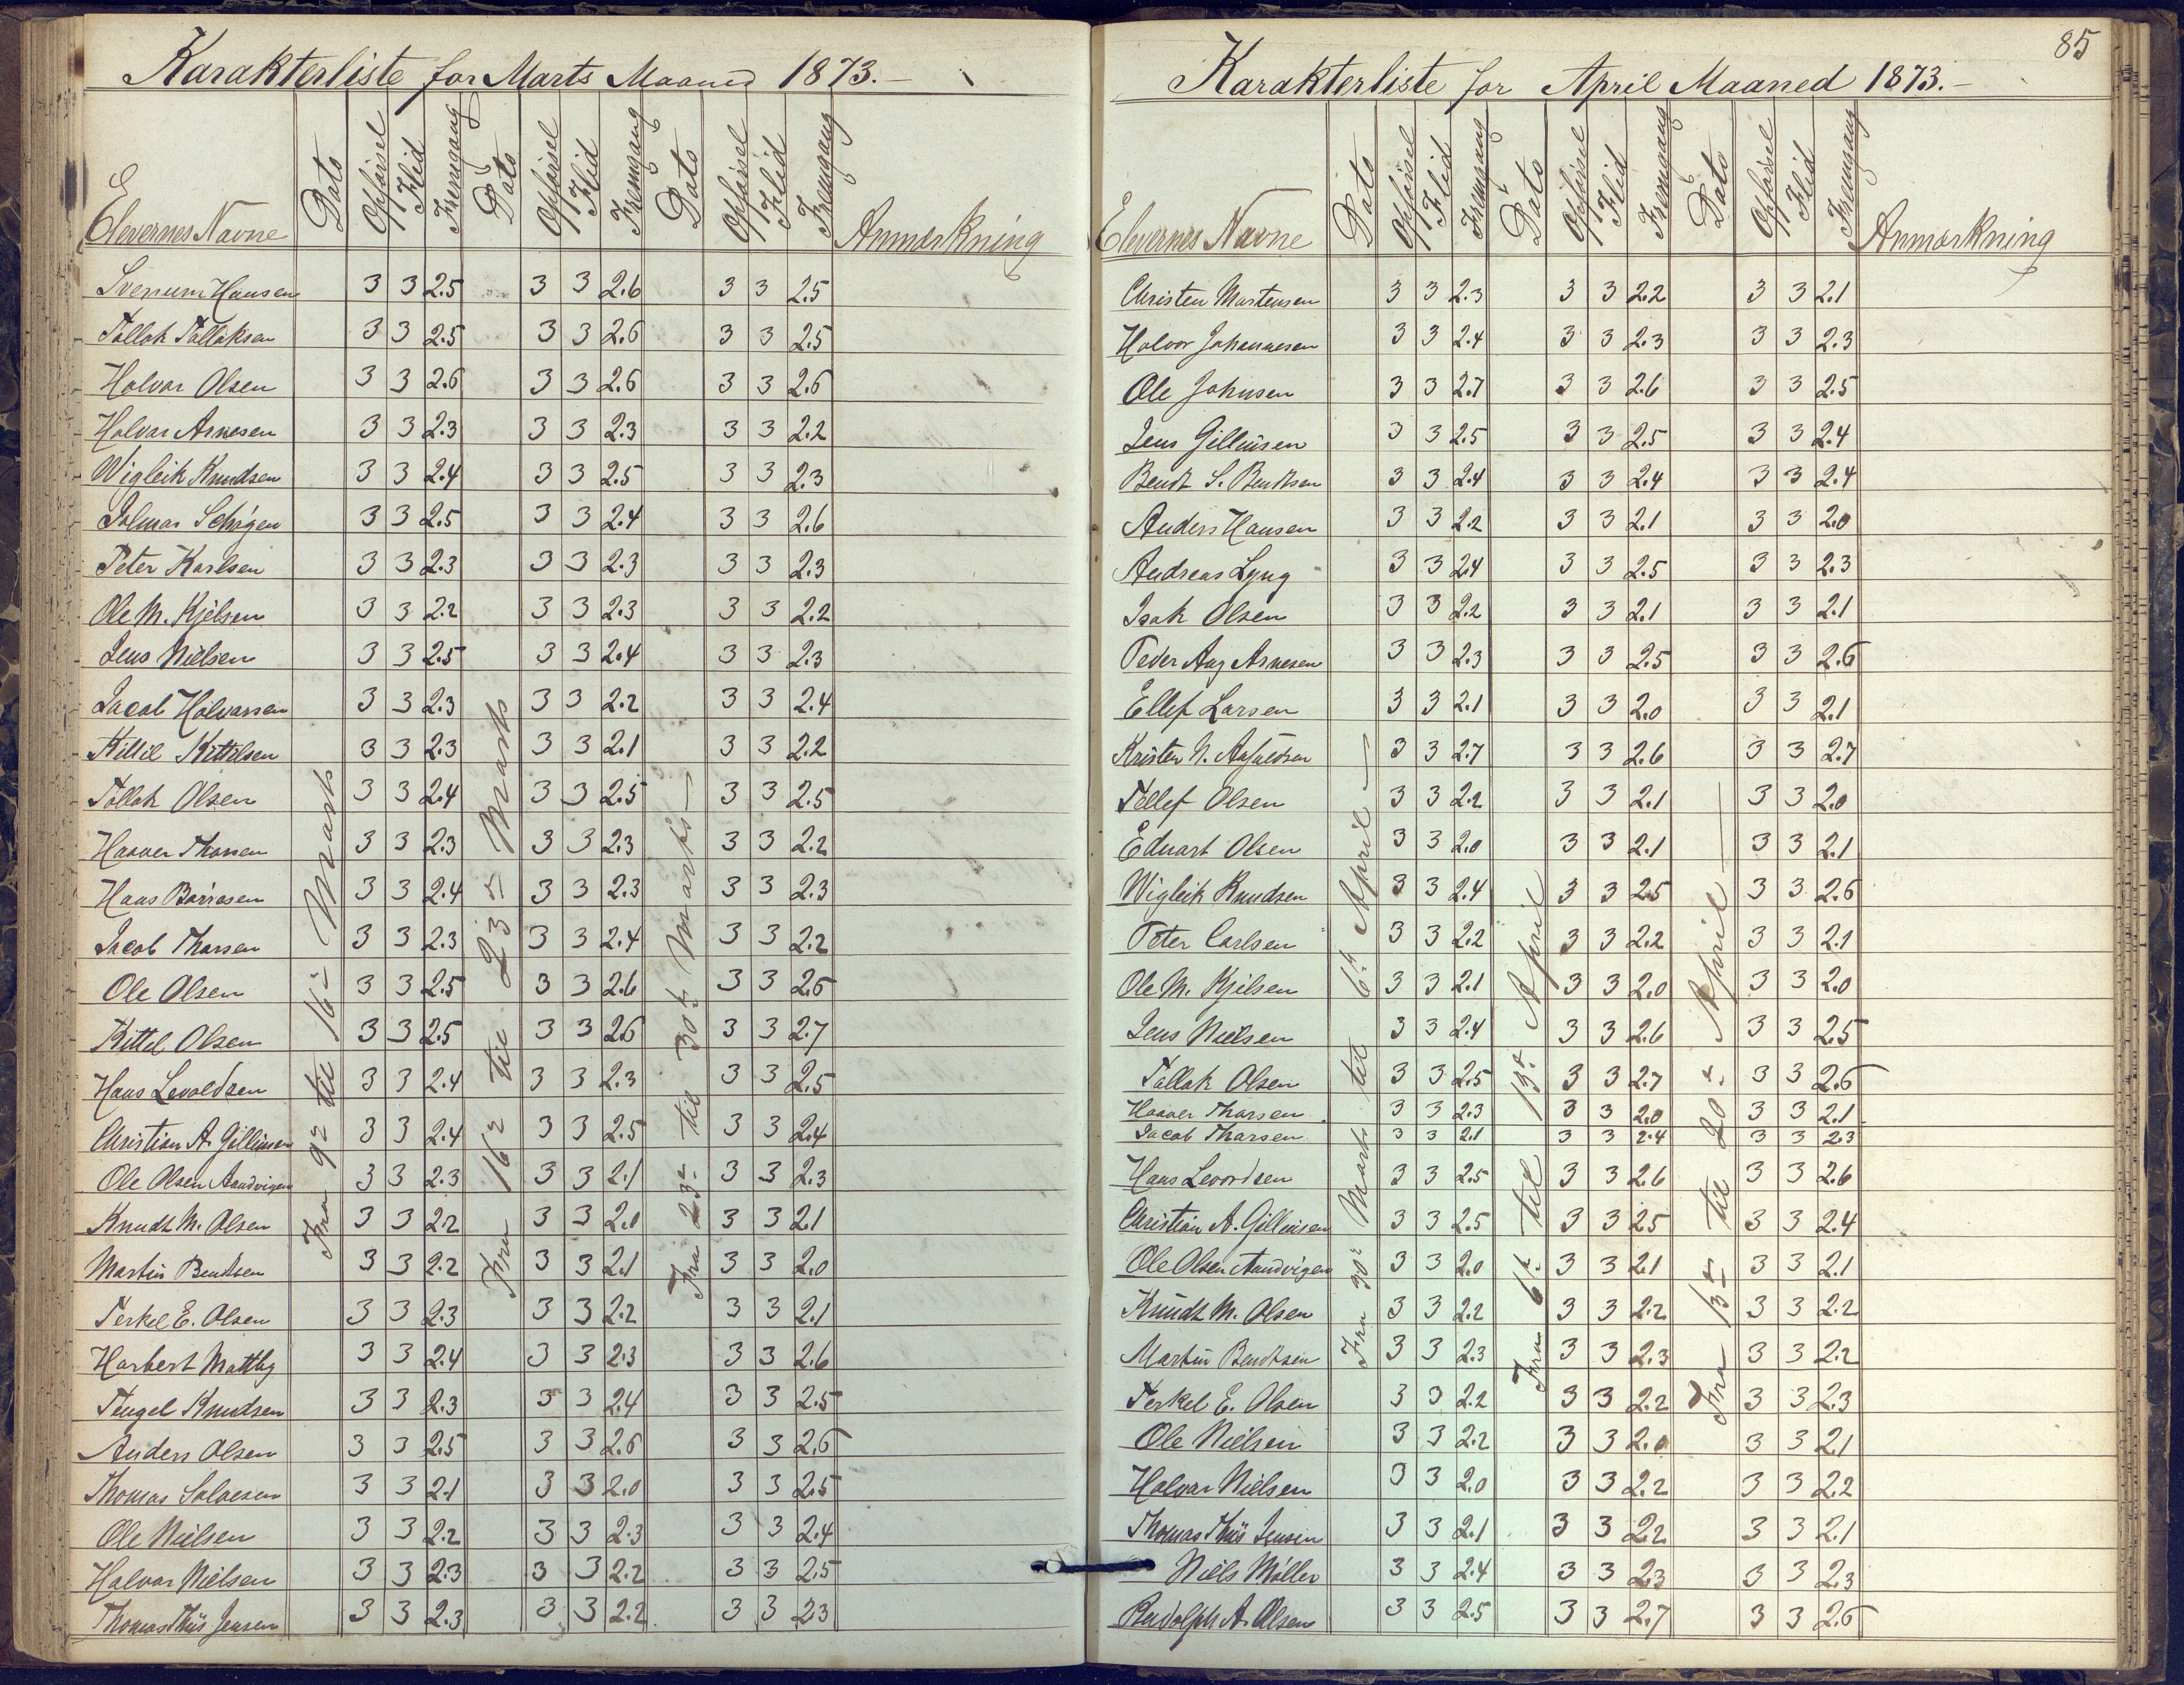 Karakterliste for Marts Maaned 1873.—
Elevernes Navne Dato Opførsel Flid Fremgang Dato Opførsel Flid Fremgang Dato Opførsel Flid Fremgang Anmærkning
Fra 9de til 16de Marts
Fra 16de til 23de Marts
Fra 23de til 30te Marts —
Svenum Hansen 3 3 2.5 3 3 2.6 3 3 2.5
Tollak Tollaksen 3 3 2.5 3 3 2.6 3 3 2.5
Halvor Olsen 3 3 2.6 3 3 2.6 3 3 2.6
Halvor Arnesen 3 3 2.3 3 3 2.3 3 3 2.2
Wigleik Knudsen 3 3 2.4 3 3 2.5 3 3 2.3
3 3 2.5 3 3 2.4 3 3 2.6
Peter Karlsen 3 3 2.3 3 3 2.3 3 3 2.3
Ole M. Kjelsen 3 3 2.2 3 3 2.3 3 3 2.2
Jens Nielsen 3 3 2.5 3 3 2.4 3 3 2.3
Jacob Halvorsen 3 3 2.3 3 3 2.2 3 3 2.4
Kittil Kittilsen 3 3 2.3 3 3 2.1 3 3 2.2
Tollak Olsen 3 3 2.4 3 3 2.5 3 3 2.5
Haaver Thorsen 3 3 2.3 3 3 2.3 3 3 2.2
Hans Børresen 3 3 2.4 3 3 2.3 3 3 2.3
Jacob Thorsen 3 3 2.3 3 3 2.4 3 3 2.2
Ole Olsen 3 3 2.5 3 3 2.6 3 3 2.6
Kittel Olsen 3 3 2.5 3 3 2.6 3 3 2.7
Hans Levoldsen 3 3 2.4 3 3 2.3 3 3 2.5
Christian A. Gillinsen 3 3 2.4 3 3 2.5 3 3 2.4
Ole Olsen Aandvigen 3 3 2.3 3 3 2.1 3 3 2.3
Knudt M. Olsen 3 3 2.2 3 3 2.0 3 3 2.1
Martin Bendtsen 3 3 2.2 3 3 2.1 3 3 2.0
Terkel E. Olsen 3 3 2.3 3 3 2.2 3 3 2.1
Harbert Mattby 3 3 2.4 3 3 2.3 3 3 2.6
Tengel Knudsen 3 3 2.3 3 3 2.4 3 3 2.5
Anders Olsen 3 3 2.5 3 3 2.6 3 3 2.6
Thomas Salvesen 3 3 2.1 3 3 2.0 3 3 2.5
Ole Nielsen 3 3 2.2 3 3 2.3 3 3 2.4
Halvor Nielsen 3 3 2.3 3 3 2.2 3 3 2.5
Thomas Thiis Jensen 3 3 2.3 3 3 2.2 3 3 2.3
85
Karakterliste for April Maaned 1873.—
Elevernes Navne Dato Opførsel Flid Fremgang Dato Opførsel Flid Fremgang Dato Opførsel Flid Fremgang Anmærkning
Fra 30te Marts til 6te April —
Fra 6te til 13de April
Fra 13de til 20de April —
Christen Martensen 3 3 2.3 3 3 2.2 3 3 2.1
Halvor Johannesen 3 3 2.4 3 3 2.3 3 3 2.3
Ole Johnsen 3 3 2.7 3 3 2.6 3 3 2.5
Jens Gillinsen 3 3 2.5 3 3 2.5 3 3 2.4
Bendt S. Bendtsen 3 3 2.4 3 3 2.4 3 3 2.4
Anders Hansen 3 3 2.2 3 3 2.1 3 3 2.0
Andreas Lyng 3 3 2.4 3 3 2.5 3 3 2.3
Isak Olsen 3 3 2.2 3 3 2.1 3 3 2.1
Peder Aug Arnesen 3 3 2.3 3 3 2.5 3 3 2.6
Ellef Larsen 3 3 2.1 3 3 2.0 3 3 2.1
Kristen N. 3 3 2.7 3 3 2.6 3 3 2.7
Tellef Olsen 3 3 2.2 3 3 2.1 3 3 2.0
Eduart Olsen 3 3 2.0 3 3 2.1 3 3 2.1
Wigleik Knudsen 3 3 2.4 3 3 2.5 3 3 2.6
Peter Carlsen 3 3 2.2 3 3 2.2 3 3 2.1
Ole M. Kjelsen 3 3 2.1 3 3 2.0 3 3 2.0
Jens Nielsen 3 3 2.4 3 3 2.6 3 3 2.5
Tallak Olsen 3 3 2.5 3 3 2.7 3 3 2.6
Haaver Thorsen 3 3 2.3 3 3 2.0 3 3 2.1
Jacob Thorsen 3 3 2.1 3 3 2.4 3 3 2.3
Hans Levordsen 3 3 2.5 3 3 2.6 3 3 2.6
Christian A. Gillinsen 3 3 2.5 3 3 2.5 3 3 2.4
Ole Olsen Aandvigen 3 3 2.0 3 3 2.1 3 3 2.1
Knudt M. Olsen 3 3 2.2 3 3 2.2 3 3 2.2
Martin Bendtsen 3 3 2.3 3 3 2.3 3 3 2.2
Terkel E. Olsen 3 3 2.2 3 3 2.2 3 3 2.3
Ole Nielsen 3 3 2.2 3 3 2.0 3 3 2.1
Halvor Nielsen 3 3 2.0 3 3 2.2 3 3 2.2
Thomas Thiis Jensen 3 3 2.1 3 3 2.2 3 3 2.1
Niels Møller 3 3 2.4 3 3 2.3 3 3 2.3
Rudolph A. Olsen 3 3 2.5 3 3 2.7 3 3 2.6